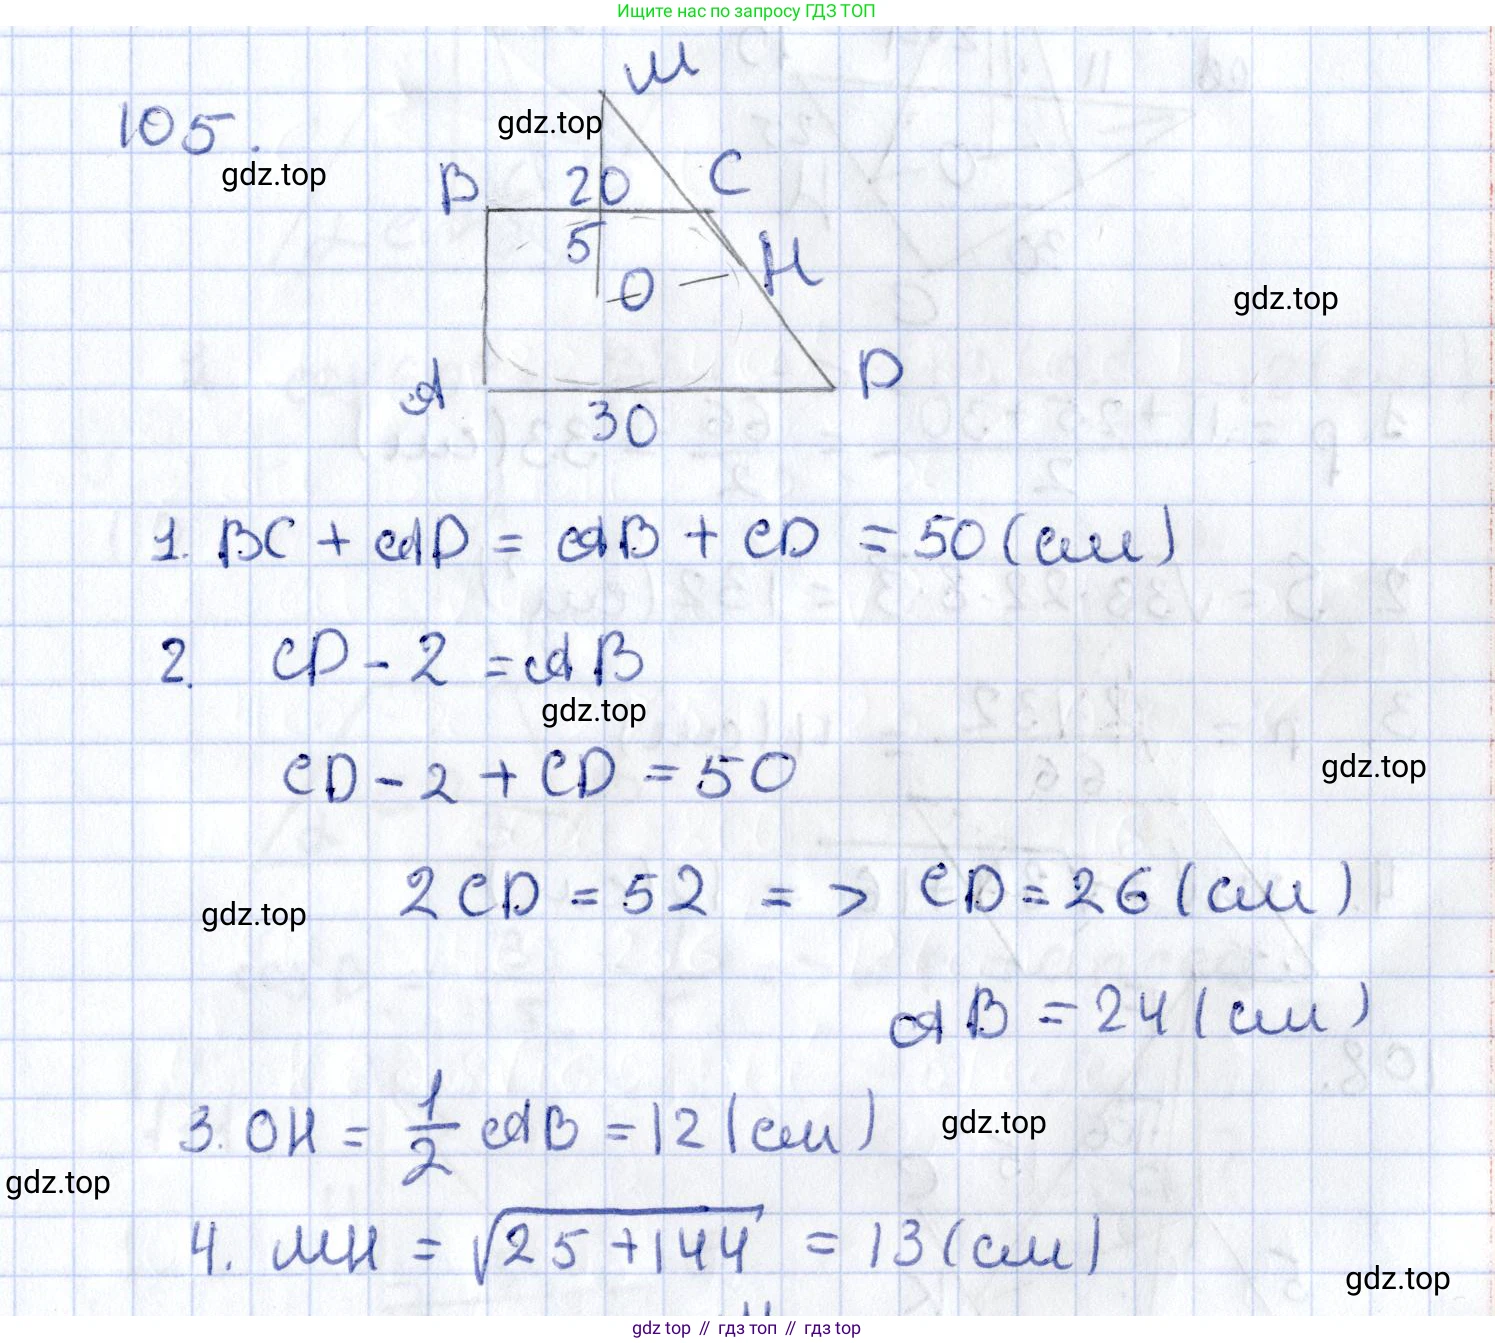 Ищите нас по запросу ГДЗ ТОП
M
105.
gdz.top
gdz.top
B 20 C
5
O H
gdz.top
A D
30
1. BC + AD = AB + CD = 50 (см)
2. CD - 2 = AB
gdz.top
CD - 2 + CD = 50
gdz.top
2CD = 52 => CD = 26 (см)
gdz.top
AB = 24 (см)
3. OH = 1/2 AB = 12 (см)
gdz.top
gdz.top
4. MH = √25 + 144 = 13 (см)
gdz.top
gdz top // гдз топ // гдз top